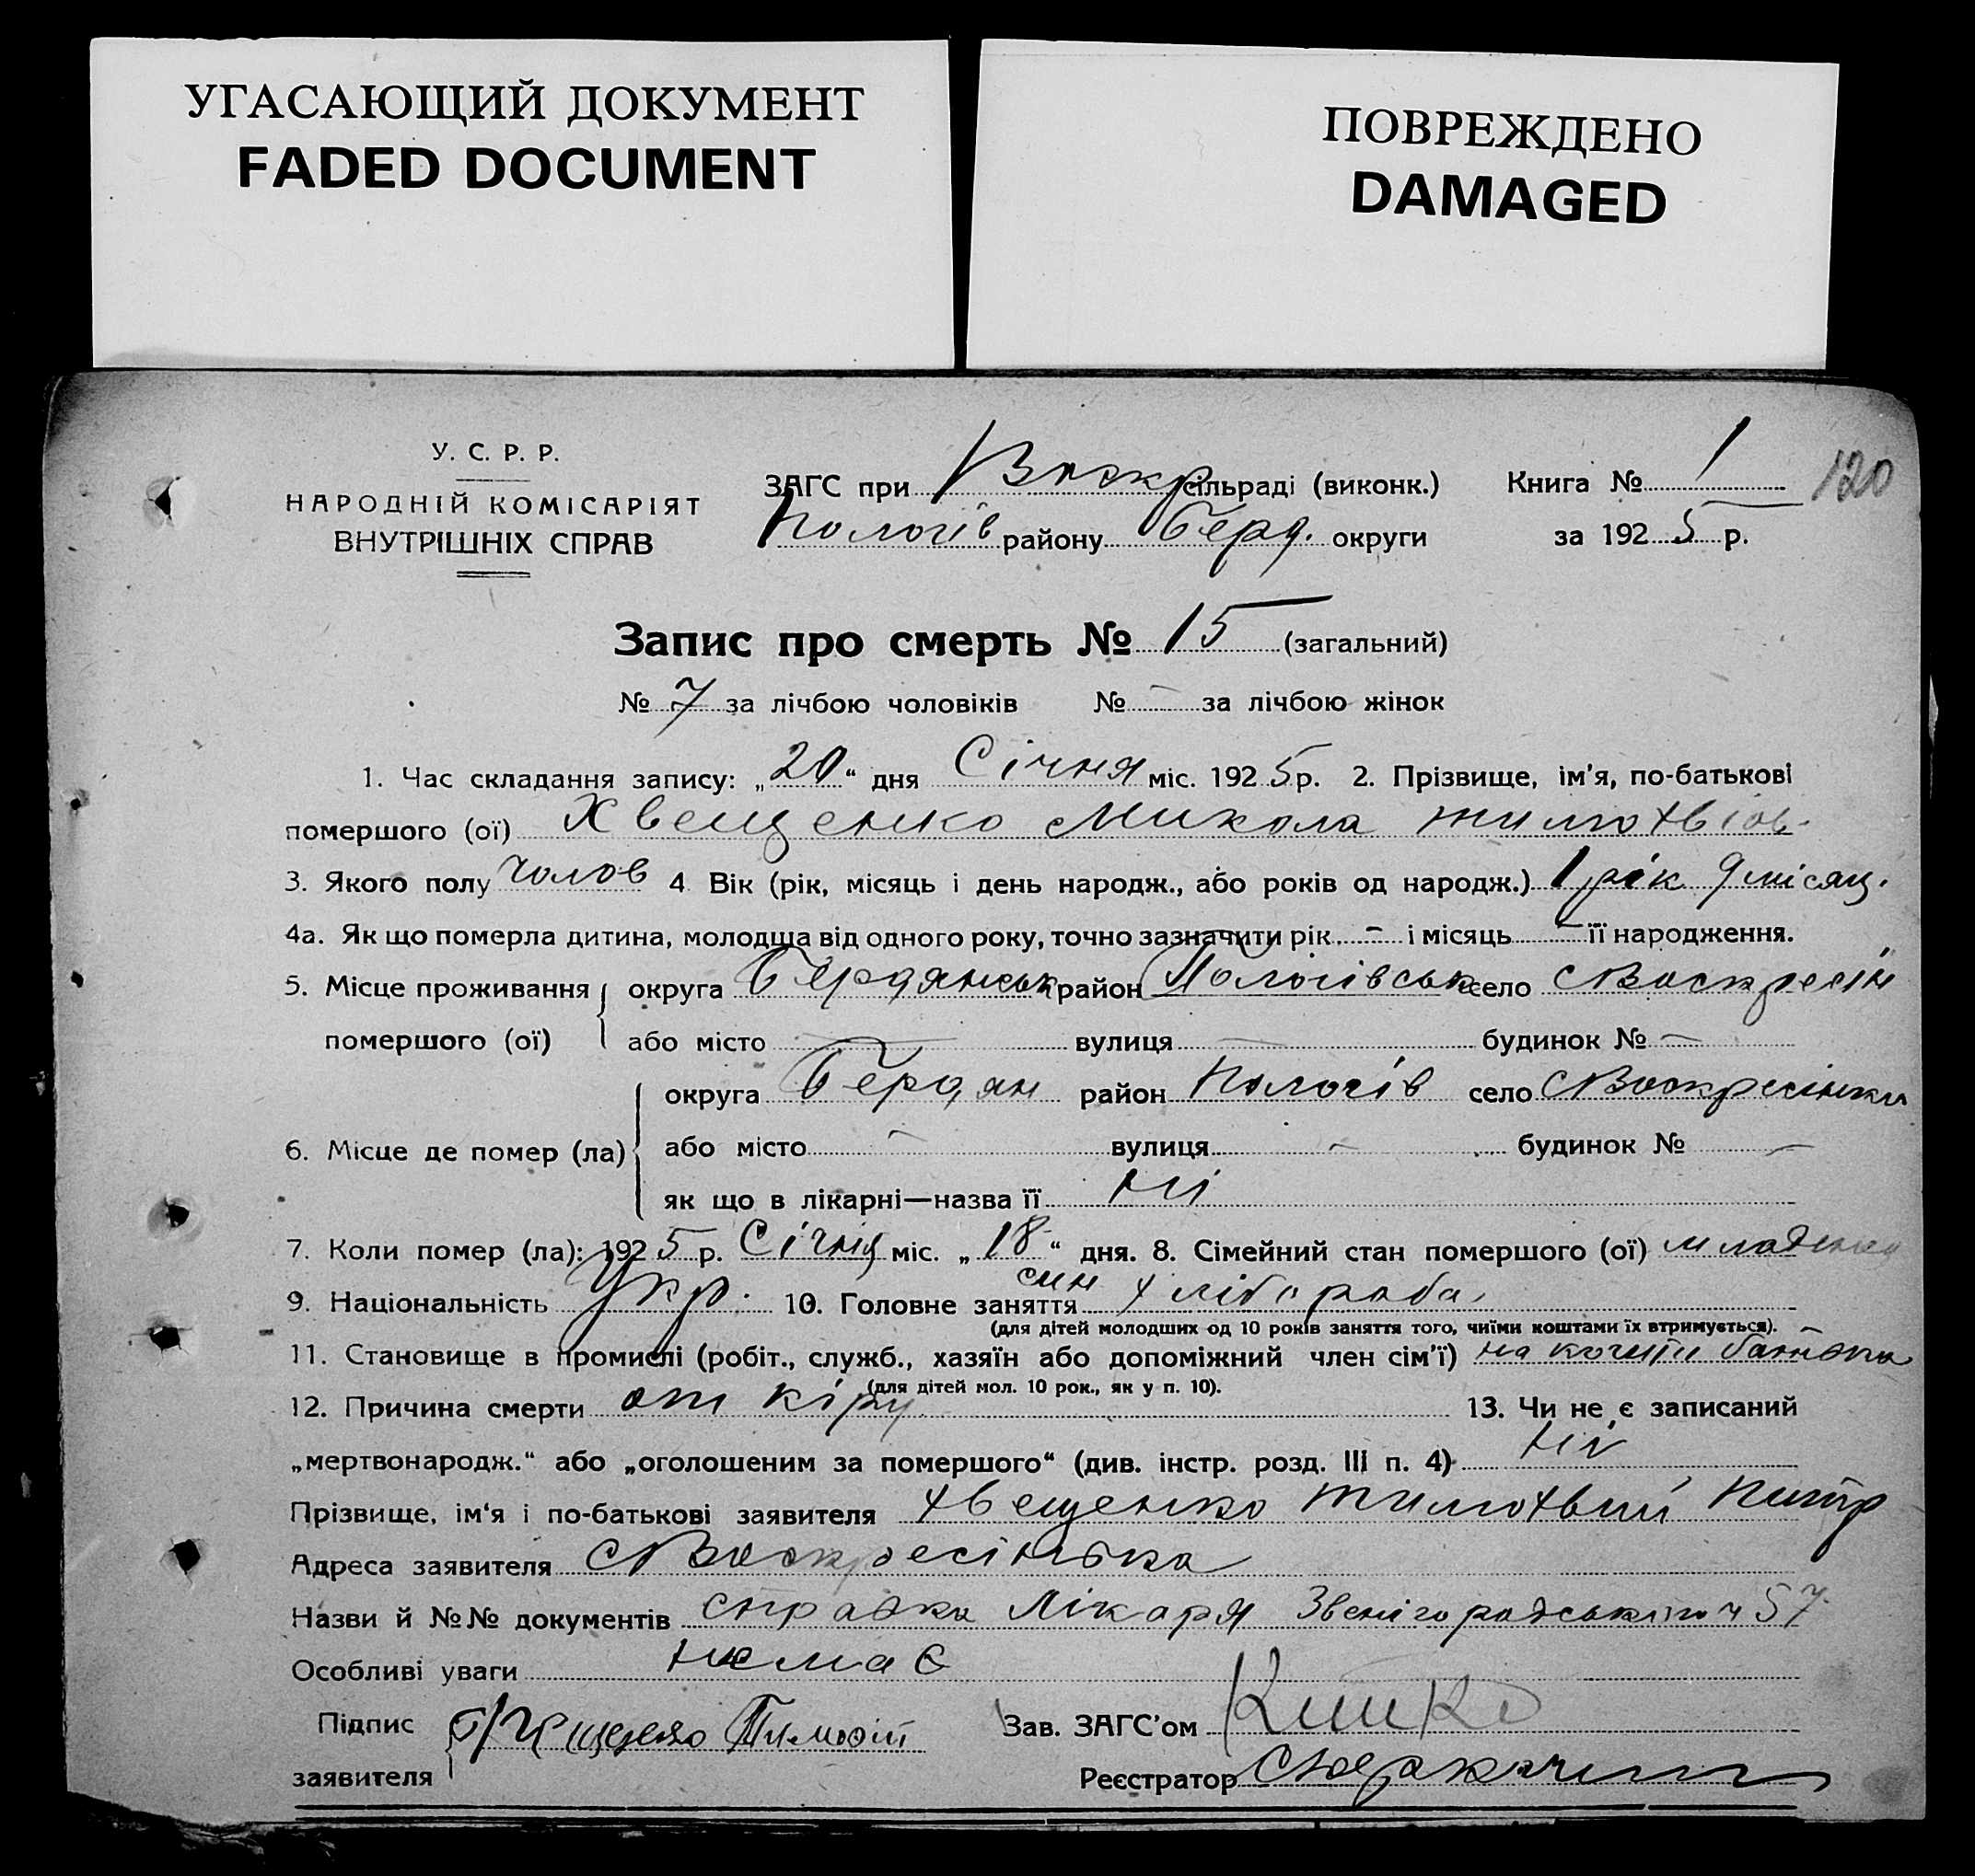 УГАСАЮЩИЙ ДОКУМЕНТ
FADED DOCUMENT
ПОВРЕЖДЕНО
DAMAGED
У. С. Р. Р.
НАРОДНІЙ КОМІСАРІЯТ
ВНУТРІШНІХ СПРАВ
ЗАГС при Воскр сільраді (виконк.)
Пологів району Берд. округи
Книга № 1
120
за 1925 р.
Запис про смерть № 15 (загальний)
№ 7 за лічбою чоловіків № - за лічбою жінок
1. Час складання запису: „20“ дня Січня міс. 1925 р. 2. Прізвище, ім'я, по-батькові
помершого (ої) Хвещенко Микола Тимохвіов.
3. Якого полу чолов 4 Вік (рік, місяць і день народж., або років од народж.) 1 рік 9 місяц.
4а. Як що померла дитина, молодща від одного року, точно зазначити рік - і місяць - її народження.
5. Місце проживання помершого (ої) округа Бердянськ район Пологівськ село Воскресін
або місто - вулиця - будинок № -
6. Місце де помер (ла) округа Бердян район Пологів село Воскресінки
або місто - вулиця - будинок № -
як що в лікарні—назва її Ні
7. Коли помер (ла): 1925 р. Січня міс. „18“ дня. 8. Сімейний стан помершого (ої) младенец
9. Національність Укр. 10. Головне заняття син хлібороба.
(для дітей молодших од 10 років заняття того, чиїми коштами їх втримується).
11. Становище в промислі (робіт., служб., хазяїн або допоміжний член сім'ї) на кошти батька
(для дітей мол. 10 рок., як у п. 10).
12. Причина смерти от кіру 13. Чи не є записаний
„мертвонародж.“ або „оголошеним за помершого“ (див. інстр. розд. III п. 4) Ні
Прізвище, ім'я і по-батькові заявителя Хвещенко Тимохвий Питр
Адреса заявителя с Воскресінька
Назви й №№ документів справка Лікаря Звенігородського ч 57
Особливі уваги немає
Підпис заявителя Тимофій
Зав. ЗАГС'ом
Реєстратор